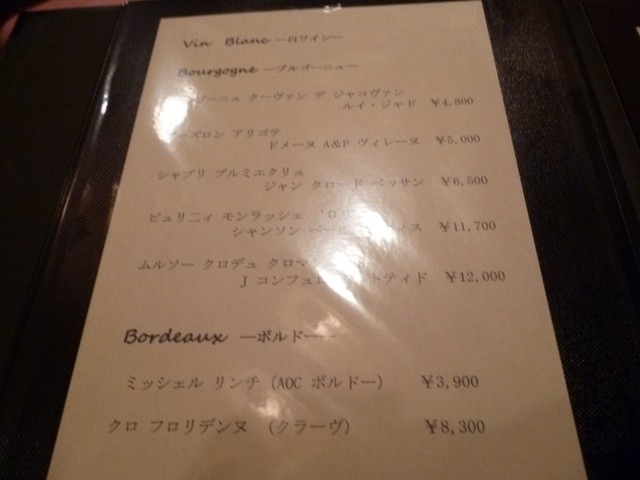 Vin Blanc ―白ワイン―
Bourgogne ―ブルゴーニュ―
クーヴァン デ ジャコヴァン
ルイ・ジャド ￥4,800
ーズロン アリゴテ
ドメーヌ A&P ヴィレーヌ ￥5,000
シャブリ プルミエクリュ
ジャン クロード ベッサン ￥6,500
ピュリニィ モンラッシェ
シャンソン ￥11,700
ムルソー クロデュ クロマ
J コンフュロ トティド ￥12,000
Bordeaux ―ボルドー―
ミッシェル リンチ (AOC ボルドー) ￥3,900
クロ フロリデンヌ (グラーヴ) ￥8,300